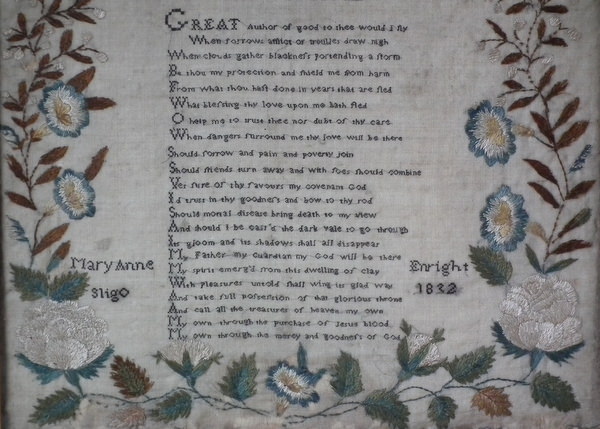 GREAT Author of good to thee would I fly
When sorrows afflict or troubles draw nigh
When clouds gather blackness portending a storm
Be thou my protection and shield me from harm
From what thou hast done in years that are fled
What blessing thy love upon me hath shed
O help me to trust thee nor doubt of thy care
When dangers surround me thy love will be there
Should sorrow and pain and poverty join
Should friends turn away and with foes should combine
Yet sure of thy favours my covenant God
I'd trust in thy goodness and bow to thy rod
Should mortal disease bring death to my view
And should I be call'd the dark vale to go through
Its gloom and its shadows shall all disappear
My Father my Guardian my God will be there
My spirit emerg'd from this dwelling of clay
With pleasures untold shall wing its glad way
And take full possession of that glorious throne
And call all the treasures of heaven my own
My own through the purchase of Jesus blood
My own through the mercy and goodness of God
Mary Anne Enright
Sligo 1832